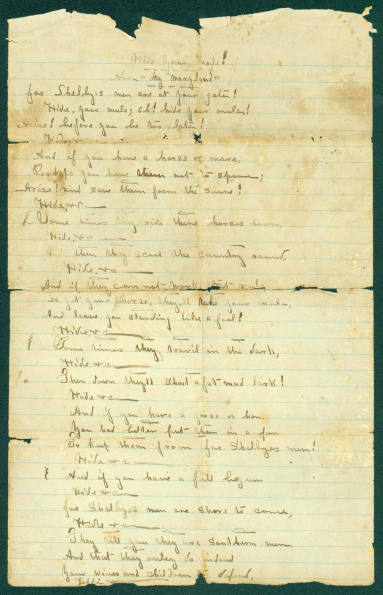 Hide Your Mule!
Air "My Maryland"
Joe Shelby's men are at your gate!
Hide, your mule; oh! hide your mule!
Arise! before you be too late!
Hide, &c
And if you have a horse or mare,
Perhaps you have them not to spare;
Arise! and save them from the snare!
Hide, &c
Some times they ride their horses down,
Hide, &c
then they scout the country around,
Hide, &c
And if they can not
to get your horse, they'll take your mule,
And leave you standing like a fool!
Hide &c
Some times they travil in the dark,
Hide &c
Then down they'll shoot a fat
Hide &c
And if you have a goose or hen
You had better put them in a pen
To keep them from Joe Shelbyes men!
Hide &c
And if you have a
Hide &c
Joe Shelbyes men are shore to come,
Hide &c
They tell you they are southern men
And that they only to
Your wives and children to defend,